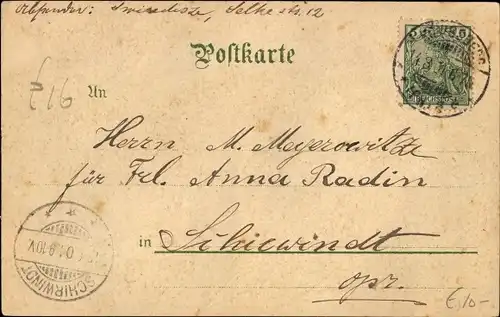 Absender: Selkestr. 12
Postkarte
£16
An
Herrn M. Meyerowitz
für Frl. Anna Radin
in Schirwindt
Opr.
SCHIRWINDT
£10-